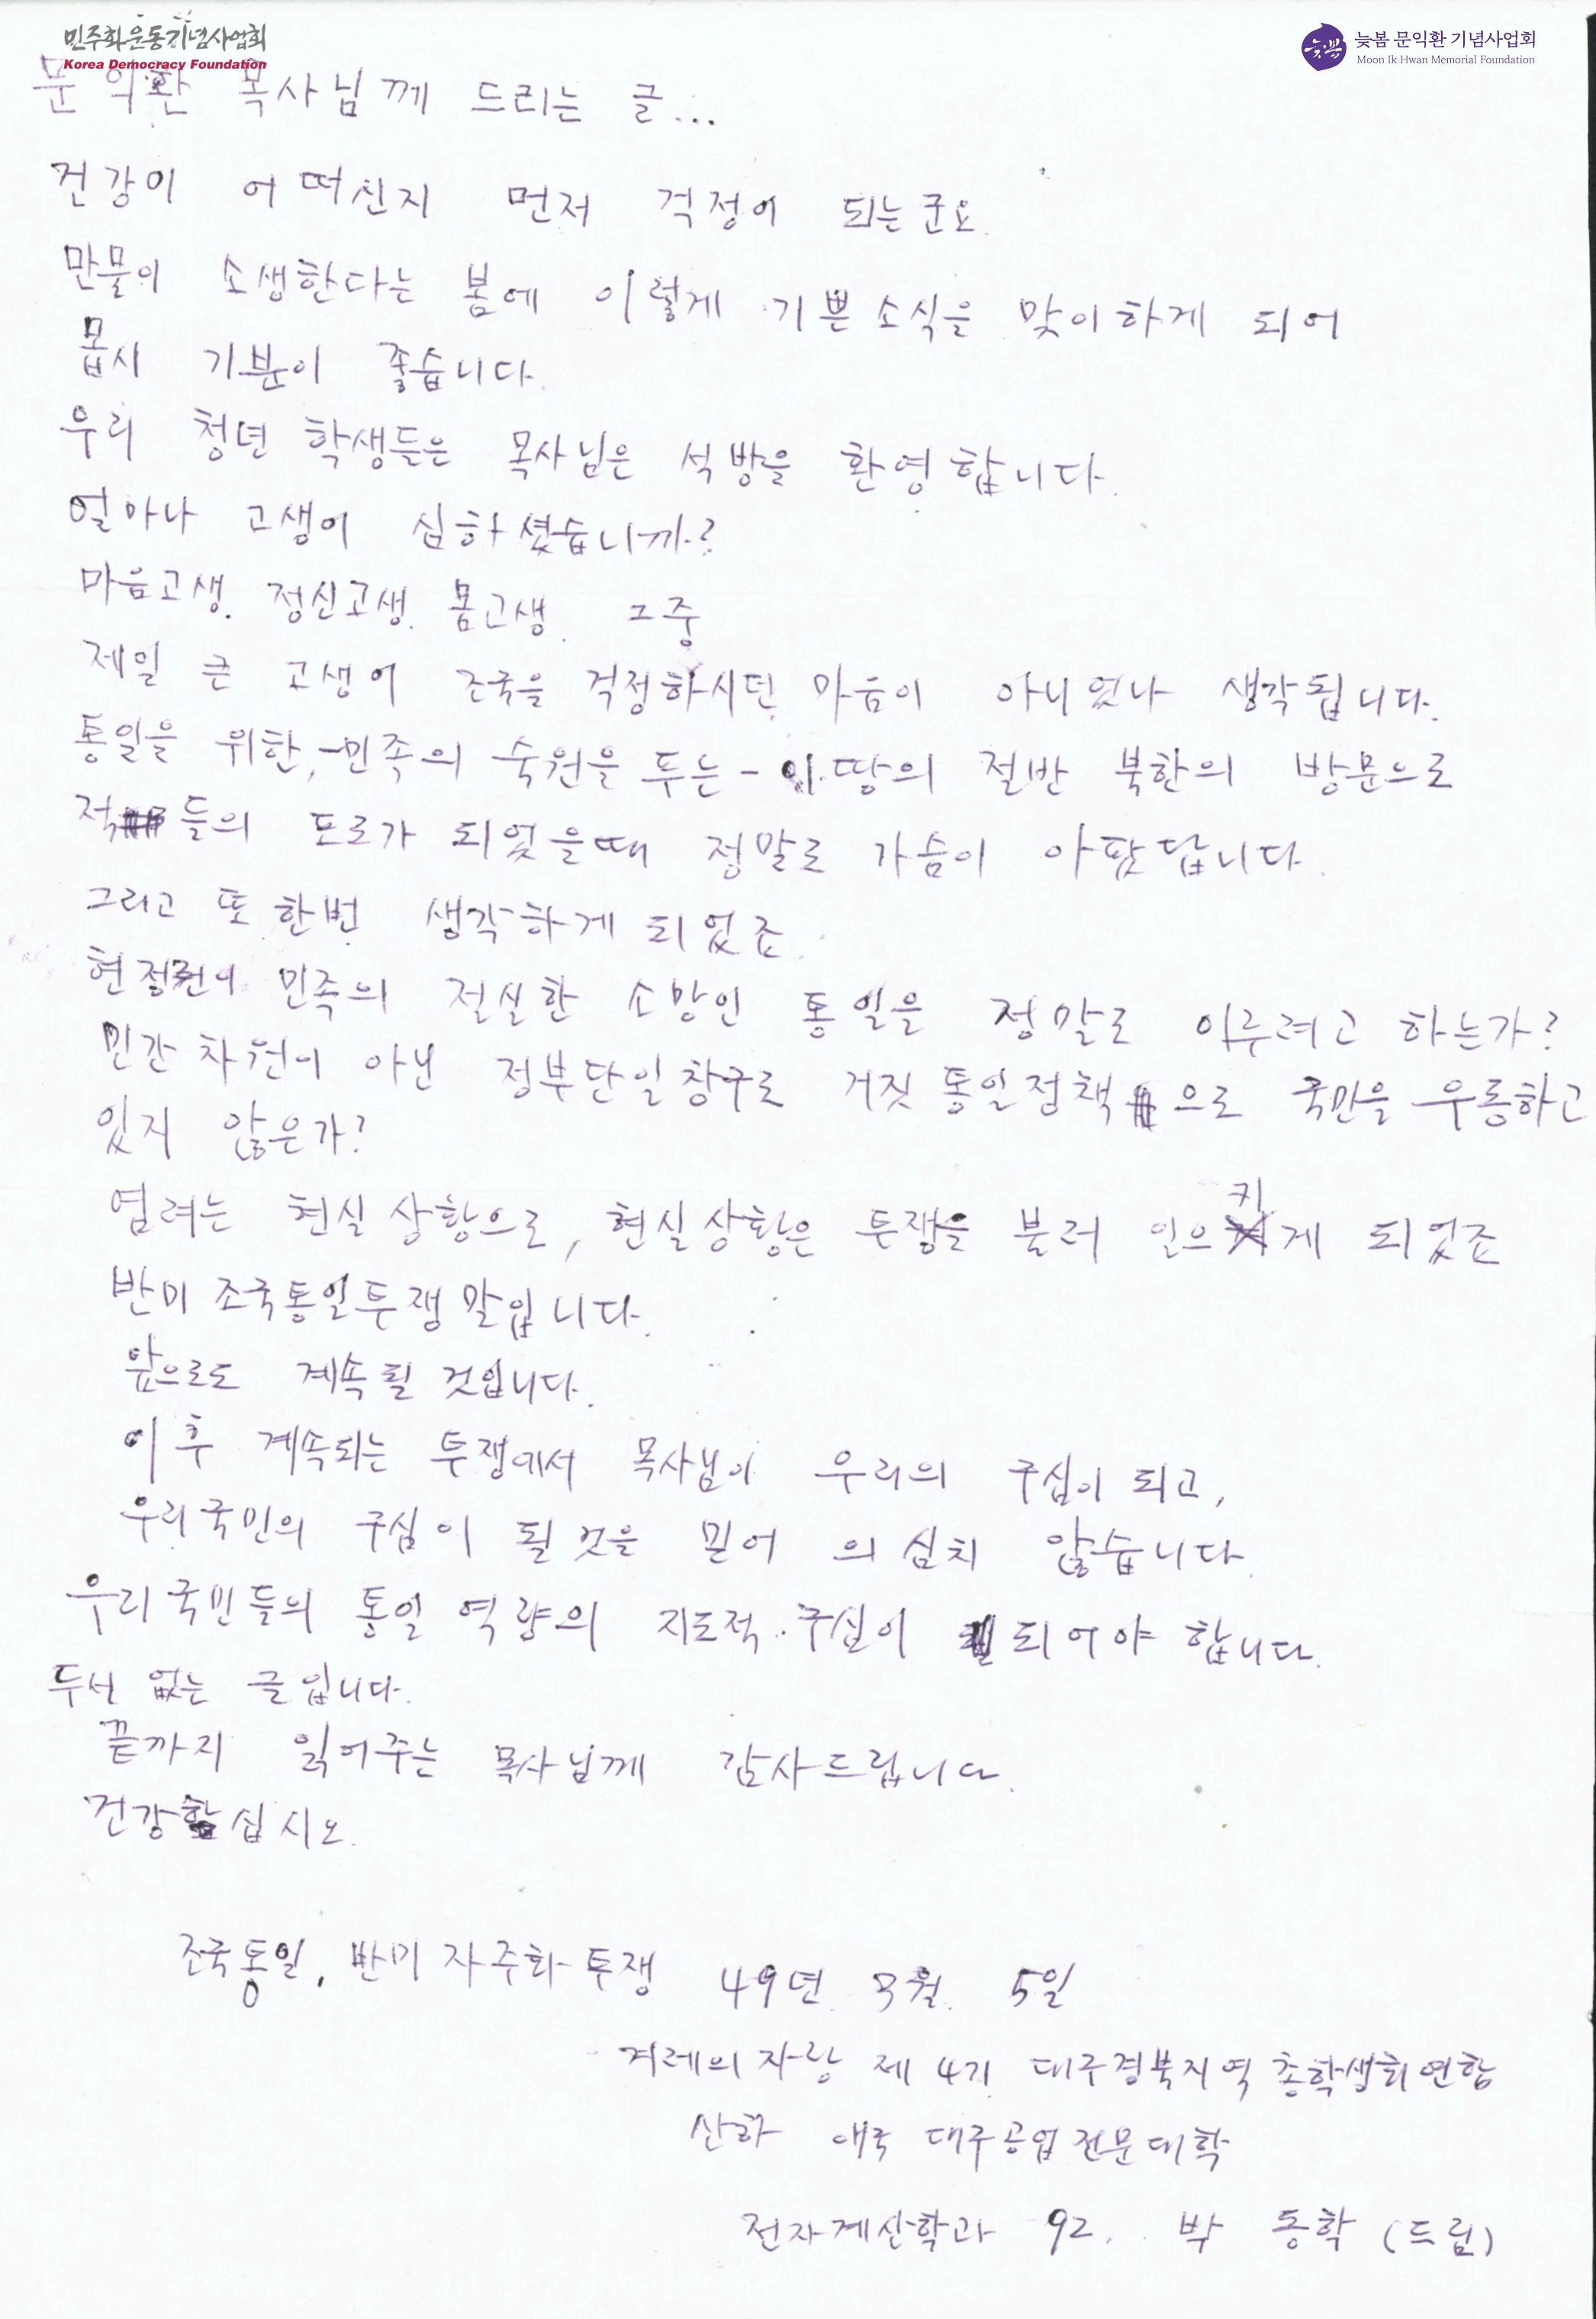 민주화운동기념사업회
Korea Democracy Foundation
늦봄 문익환 기념사업회
Moon Ik Hwan Memorial Foundation
늦봄
문익환 목사님께 드리는 글...
건강이 어떠신지 먼저 걱정이 되는군요.
만물이 소생한다는 봄에 이렇게 기쁜소식을 맞이하게 되어
몹시 기분이 좋습니다.
우리 청년 학생들은 목사님은 석방을 환영합니다.
얼마나 고생이 심하셨습니까?
마음고생. 정신고생. 몸고생. 그중
제일 큰 고생이 조국을 걱정하시던 마음이 아니었나 생각됩니다.
통일을 위한, -민족의 숙원을 푸는- 이땅의 절반 북한의 방문으로
적들의 포로가 되었을때 정말로 가슴이 아팠답니다.
그리고 또 한번 생각하게 되었죠.
현정권이 민족의 절실한 소망인 통일을 정말로 이루려고 하는가?
민간차원이 아닌 정부단일창구로 거짓통일정책으로 국민을 우롱하고
있지 않은가?
염려는 현실상황으로, 현실상황은 투쟁을 불러 일으키게 되었죠
반미조국통일투쟁말입니다.
앞으로도 계속될 것입니다.
이후 계속되는 투쟁에서 목사님이 우리의 구심이 되고,
우리국민의 구심이 될것을 믿어 의심치 않습니다.
우리국민들의 통일 역량의 지도적 구심이 되어야 합니다.
두서 없는 글입니다.
끝까지 읽어주는 목사님께 감사드립니다.
건강하십시오.
조국통일, 반미자주화투쟁 49년 3월 5일
겨레의자랑 제4기 대구경북지역총학생회연합
산하 애국 대구공업전문대학
전자계산학과 92. 박 동학 (드림)